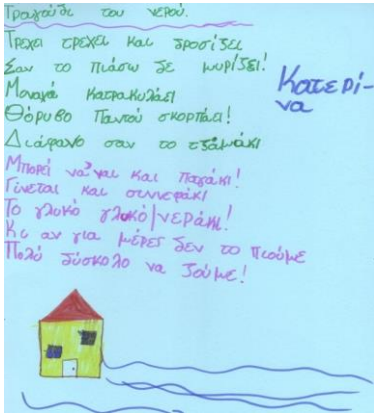 Τραγούδι του νερού.
Τρέχει τρέχει και δροσίζει
Σαν το πιάσω δε μυρίζει!
Μοναχά κατρακυλάει
Θόρυβο παντού σκορπάει!
Διάφανο σαν το τζαμάκι
Μπορεί να 'ναι και παγάκι!
Γίνεται και συννεφάκι
Το γλυκό γλυκό νεράκι!
Κι αν για μέρες δεν το πιούμε
Πολύ δύσκολο να ζούμε!
Κατερί-
να